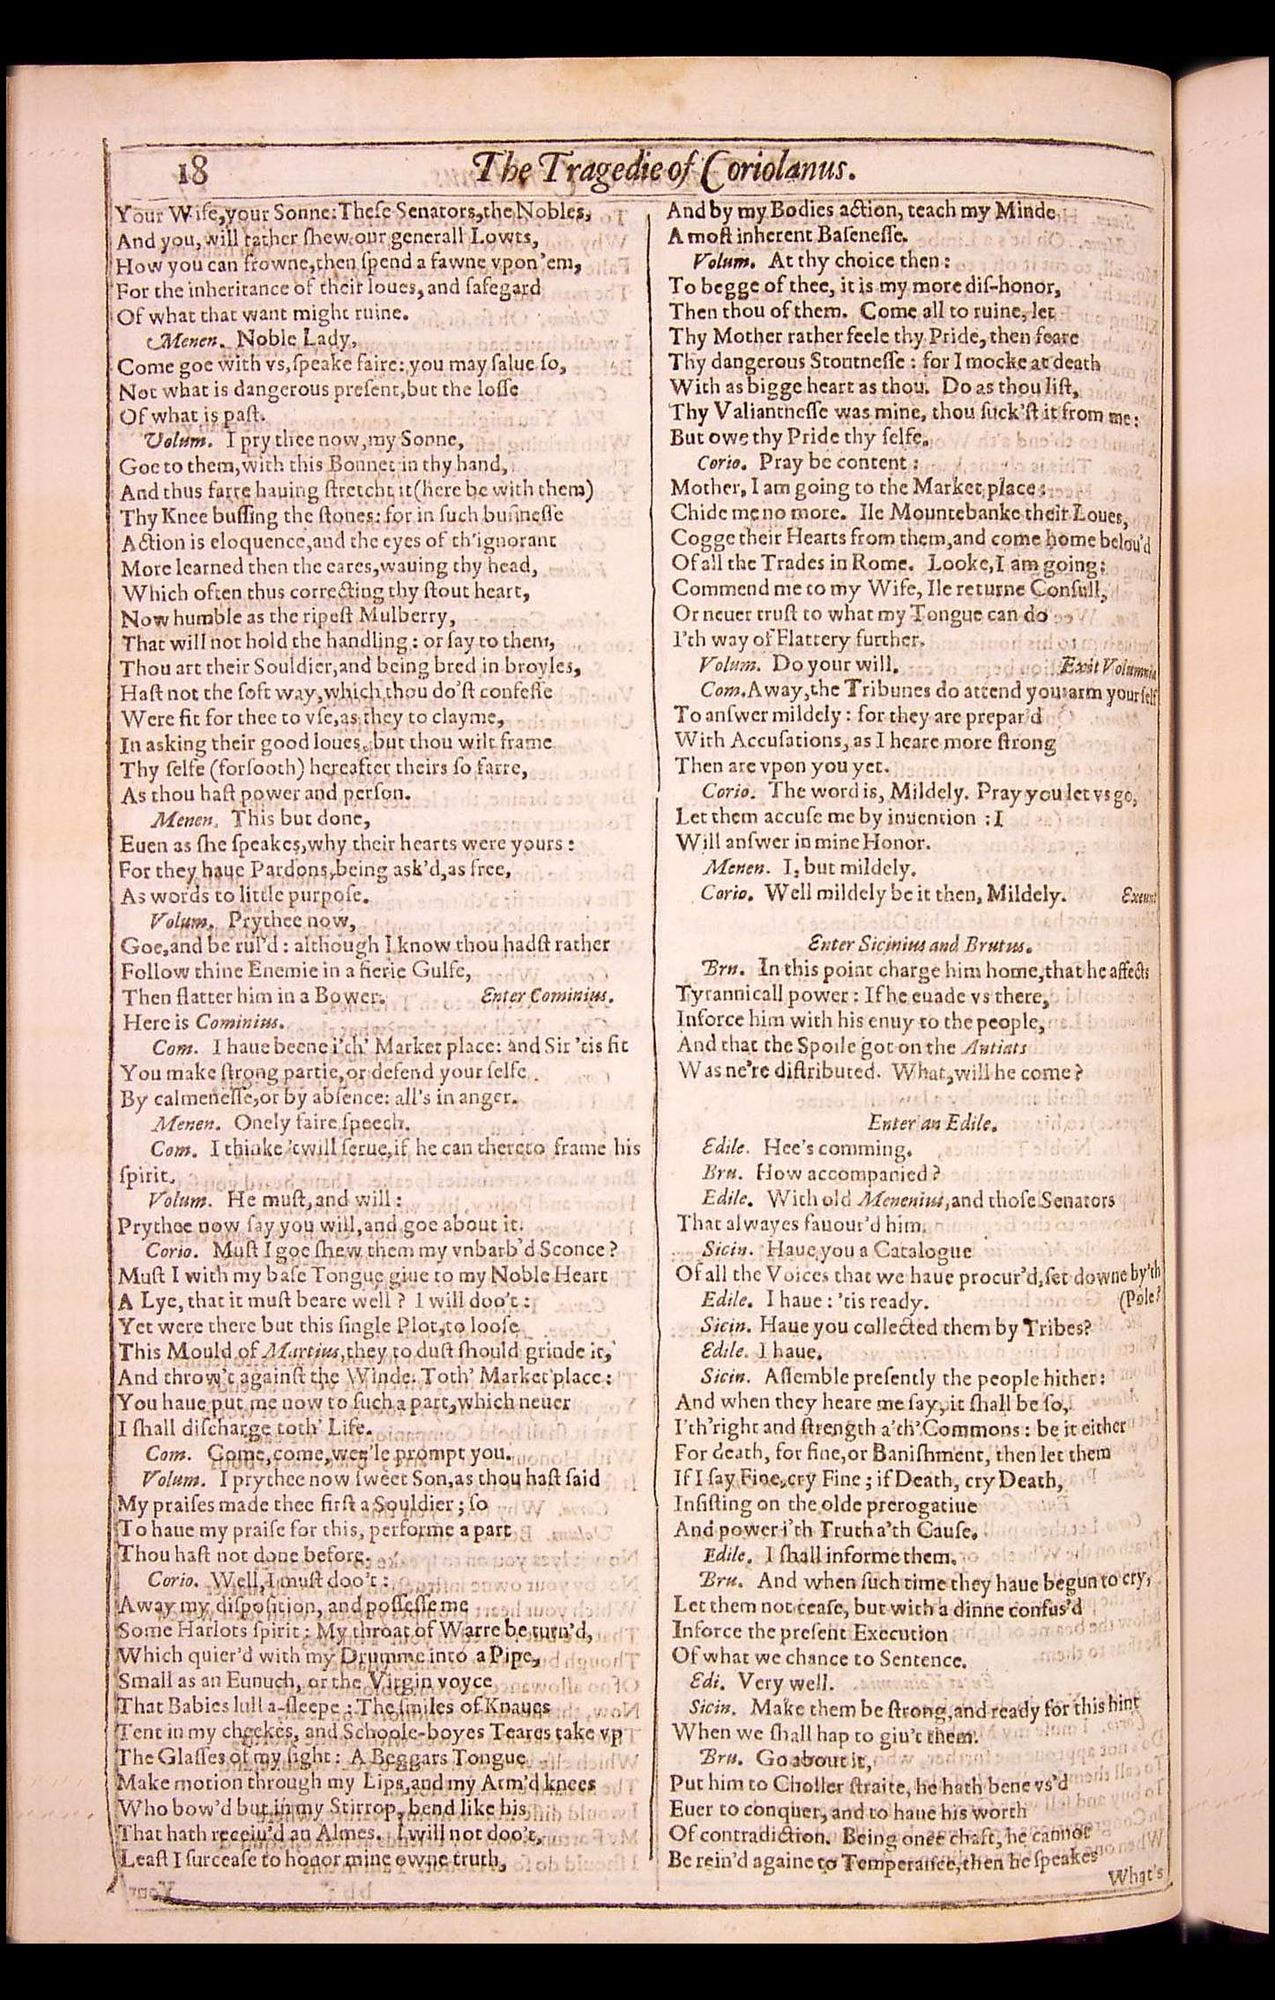 18
The Tragedie of Coriolanus.
Your Wife,your Sonne:Theſe Senators,the Nobles,
And you, will rather ſhew our generall Lowts,
How you can frowne,then ſpend a fawne vpon'em,
For the inheritance of their loues, and ſafegard
Of what that want might ruine.
Menen. Noble Lady,
Come goe with vs,ſpeake faire: you may ſalue ſo,
Not what is dangerous preſent,but the loſſe
Of what is paſt.
Volum. I pry thee now,my Sonne,
Goe to them,with this Bonnet in thy hand,
And thus farre hauing ſtretcht it(here be with them)
Thy Knee buſſing the ſtones: for in ſuch buſineſſe
Action is eloquence,and the eyes of th'ignorant
More learned then the eares,wauing thy head,
Which often thus correcting thy ſtout heart,
Now humble as the ripeſt Mulberry,
That will not hold the handling: or ſay to them,
Thou art their Souldier,and being bred in broyles,
Haſt not the ſoft way,which thou do'ſt confeſſe
Were fit for thee to vſe,as they to clayme,
In asking their good loues, but thou wilt frame
Thy ſelfe (forſooth) hereafter theirs ſo farre,
As thou haſt power and perſon.
Menen. This but done,
Euen as ſhe ſpeakes,why their hearts were yours:
For they haue Pardons,being ask'd,as free,
As words to little purpoſe.
Volum. Prythee now,
Goe,and be rul'd: although I know thou hadſt rather
Follow thine Enemie in a fierie Gulfe,
Then flatter him in a Bower. Enter Cominius.
Here is Cominius.
Com. I haue beene i'th' Market place: and Sir 'tis fit
You make ſtrong partie,or defend your ſelfe
By calmeneſſe,or by abſence: all's in anger.
Menen. Onely faire ſpeech.
Com. I thinke 'twill ſerue,if he can thereto frame his
ſpirit.
Volum. He muſt,and will:
Prythee now ſay you will,and goe about it.
Corio. Muſt I goe ſhew them my vnbarb'd Sconce?
Muſt I with my baſe Tongue giue to my Noble Heart
A Lye,that it muſt beare well? I will doo't:
Yet were there but this ſingle Plot,to looſe
This Mould of Martius,they to duſt ſhould grinde it,
And throw't againſt the Winde. Toth' Market place:
You haue put me now to ſuch a part,which neuer
I ſhall diſcharge toth' Life.
Com. Come,come,wee'le prompt you.
Volum. I prythee now ſweet Son,as thou haſt ſaid
My praiſes made thee firſt a Souldier; ſo
To haue my praiſe for this, performe a part
Thou haſt not done before.
Corio. Well,I muſt doo't:
Away my diſpoſition, and poſſeſſe me
Some Harlots ſpirit: My throat of Warre be turn'd,
Which quier'd with my Drumme into a Pipe,
Small as an Eunuch, or the Virgin voyce
That Babies lull a-ſleepe: The ſmiles of Knaues
Tent in my cheekes, and Schoole-boyes Teares take vp
The Glaſſes of my ſight: A Beggars Tongue
Make motion through my Lips,and my Arm'd knees
Who bow'd but in my Stirrop, bend like his
That hath receiu'd an Almes. I will not doo't,
Leaſt I ſurceaſe to honor mine owne truth,
And by my Bodies action, teach my Minde
A moſt inherent Baſeneſſe.
Volum. At thy choice then:
To begge of thee, it is my more diſ-honor,
Then thou of them. Come all to ruine, let
Thy Mother rather feele thy Pride, then feare
Thy dangerous Stoutneſſe: for I mocke at death
With as bigge heart as thou. Do as thou liſt,
Thy Valiantneſſe was mine, thou ſuck'ſt it from me:
But owe thy Pride thy ſelfe.
Corio. Pray be content:
Mother, I am going to the Market place:
Chide me no more. Ile Mountebanke their Loues,
Cogge their Hearts from them,and come home belou'd
Of all the Trades in Rome. Looke,I am going:
Commend me to my Wife, Ile returne Conſull,
Or neuer truſt to what my Tongue can do
I'th way of Flattery further.
Volum. Do your will. Exit Volumnia
Com.Away,the Tribunes do attend you:arm your ſelf
To anſwer mildely: for they are prepar'd
With Accuſations, as I heare more ſtrong
Then are vpon you yet.
Corio. The word is, Mildely. Pray you let vs go,
Let them accuſe me by inuention :I
Will anſwer in mine Honor.
Menen. I, but mildely.
Corio. Well mildely be it then, Mildely. Exeunt
Enter Sicinius and Brutus.
Bru. In this point charge him home,that he affects
Tyrannicall power: If he euade vs there,
Inforce him with his enuy to the people,
And that the Spoile got on the Antiats
Was ne're diſtributed. What,will he come?
Enter an Edile.
Edile. Hee's comming.
Bru. How accompanied?
Edile. With old Menenius,and thoſe Senators
That alwayes fauour'd him.
Sicin. Haue you a Catalogue
Of all the Voices that we haue procur'd,ſet downe by'th
(Pole?
Edile. I haue: 'tis ready.
Sicin. Haue you collected them by Tribes?
Edile. I haue.
Sicin. Aſſemble preſently the people hither:
And when they heare me ſay,it ſhall be ſo,
I'th'right and ſtrength a'th'Commons: be it either
For death, for fine,or Baniſhment, then let them
If I ſay Fine,cry Fine; if Death, cry Death,
Inſiſting on the olde prerogatiue
And power i'th Truth a'th Cauſe.
Edile. I ſhall informe them.
Bru. And when ſuch time they haue begun to cry,
Let them not ceaſe, but with a dinne confus'd
Inforce the preſent Execution
Of what we chance to Sentence.
Edi. Very well.
Sicin. Make them be ſtrong,and ready for this hint
When we ſhall hap to giu't them.
Bru. Go about it,
Put him to Choller ſtraite, he hath bene vs'd
Euer to conquer, and to haue his worth
Of contradiction. Being once chaft, he cannot
Be rein'd againe to Temperance,then he ſpeakes
What's